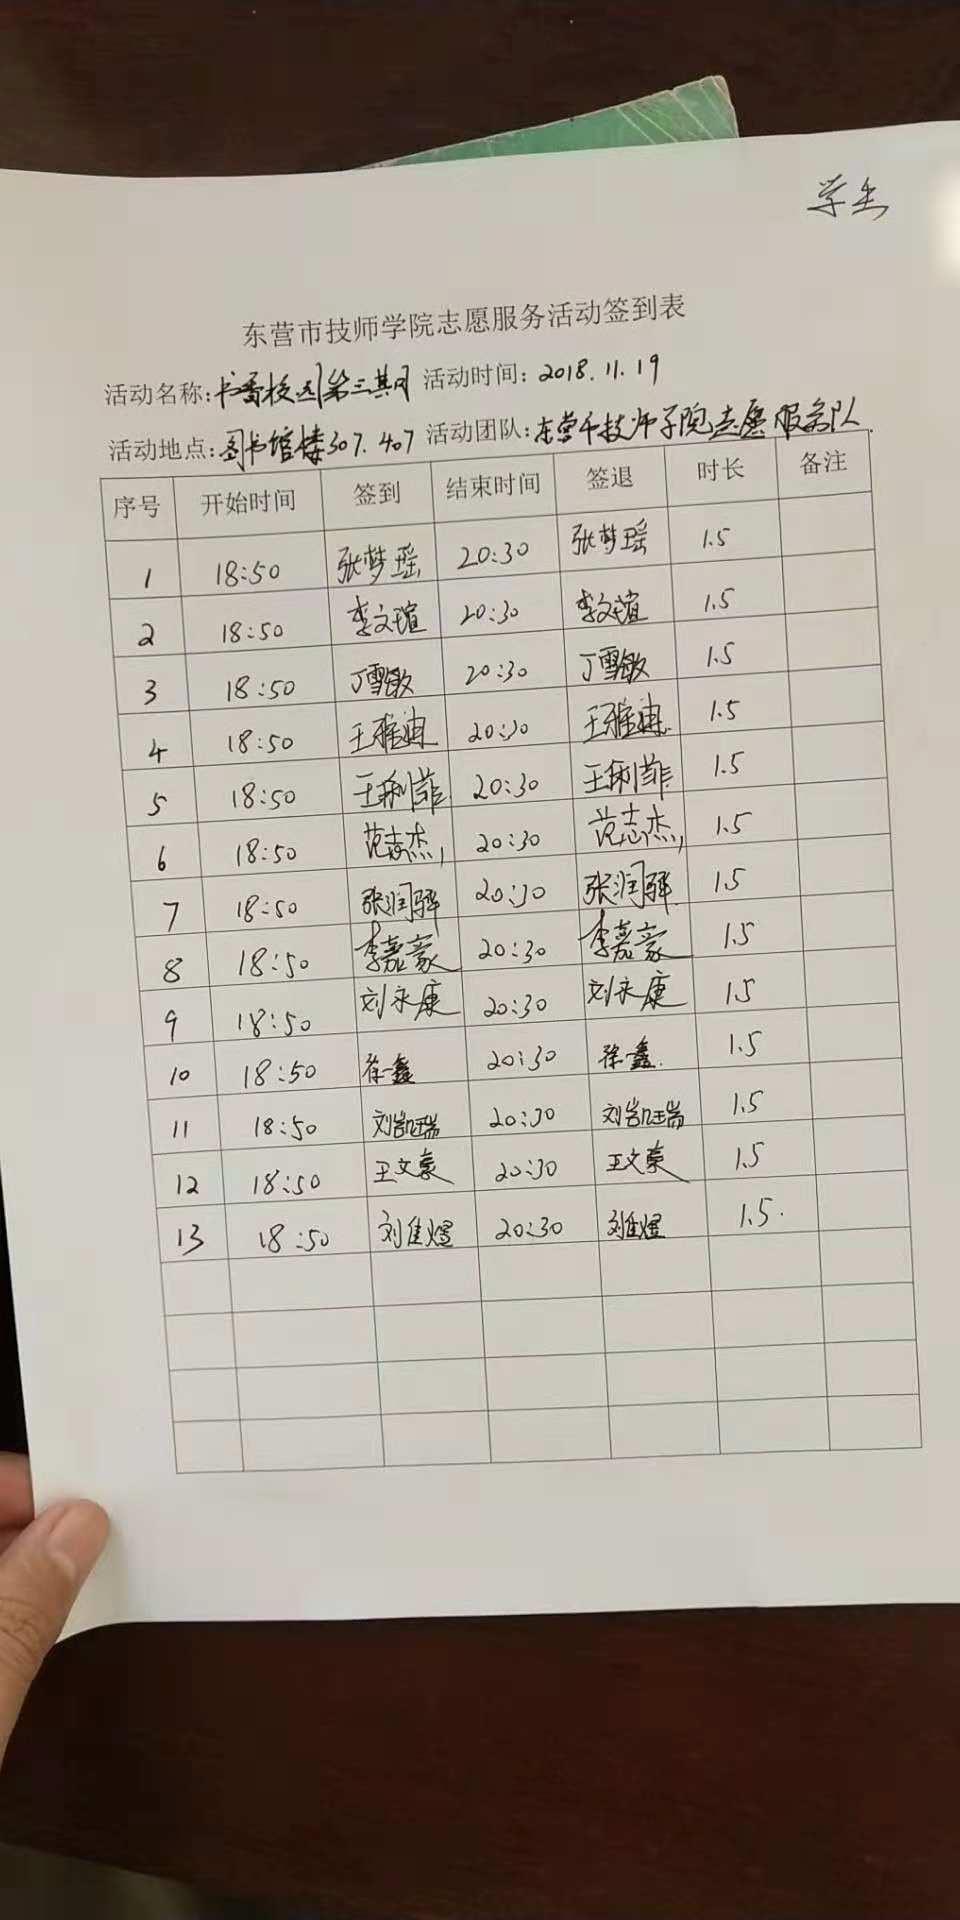 学生
东营市技师学院志愿服务活动签到表
活动名称:书香校园第三期 活动时间: 2018.11.19
活动地点:图书馆楼307.407 活动团队:东营市技师学院志愿服务队.
序号 开始时间 签到 结束时间 签退 时长 备注
1 18:50 张梦瑶 20:30 张梦瑶 1.5
2 18:50 李文瑄 20:30 李文瑄 1.5
3 18:50 丁雪敏 20:30 丁雪敏 1.5
4 18:50 王雅迪 20:30 王雅迪 1.5
5 18:50 王利菲 20:30 王利菲 1.5
6 18:50 范志杰 20:30 范志杰 1.5
7 18:50 张润驿 20:30 张润驿 1.5
8 18:50 李嘉豪 20:30 李嘉豪 1.5
9 18:50 刘永康 20:30 刘永康 1.5
10 18:50 徐鑫 20:30 徐鑫. 1.5
11 18:50 刘凯瑞 20:30 刘凯瑞 1.5
12 18:50 王文豪 20:30 王文豪 1.5
13 18:50 刘佳煜 20:30 刘佳煜 1.5.